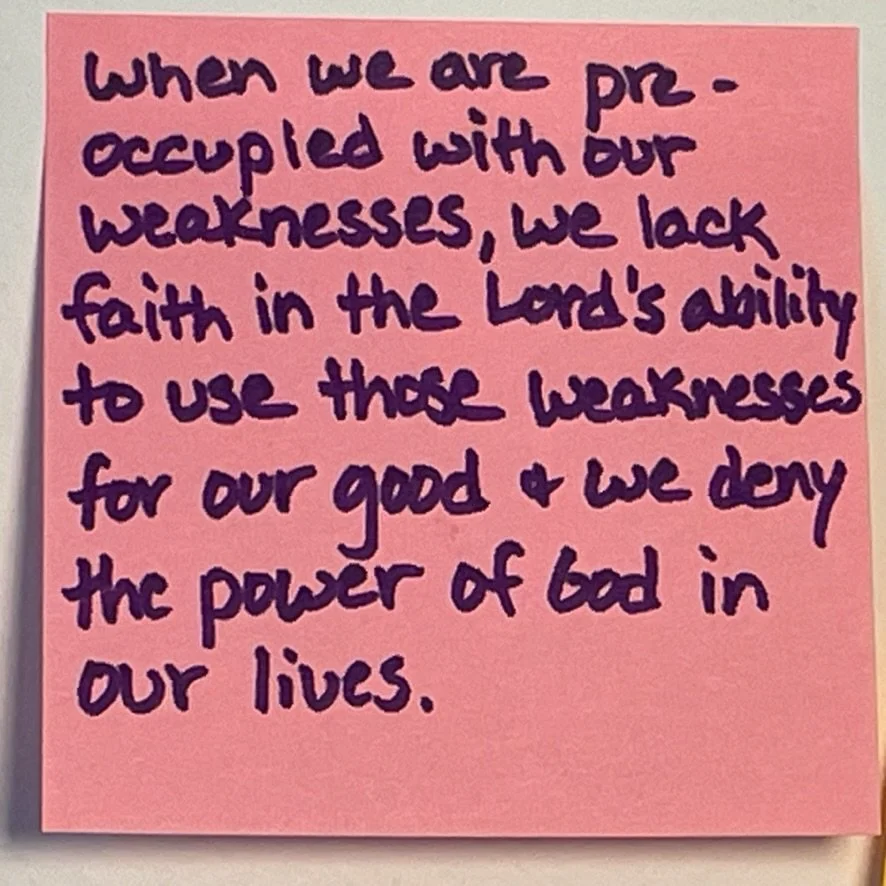 When we are pre-
occupied with our
weaknesses, we lack
faith in the Lord's ability
to use those weaknesses
for our good & we deny
the power of God in
our lives.